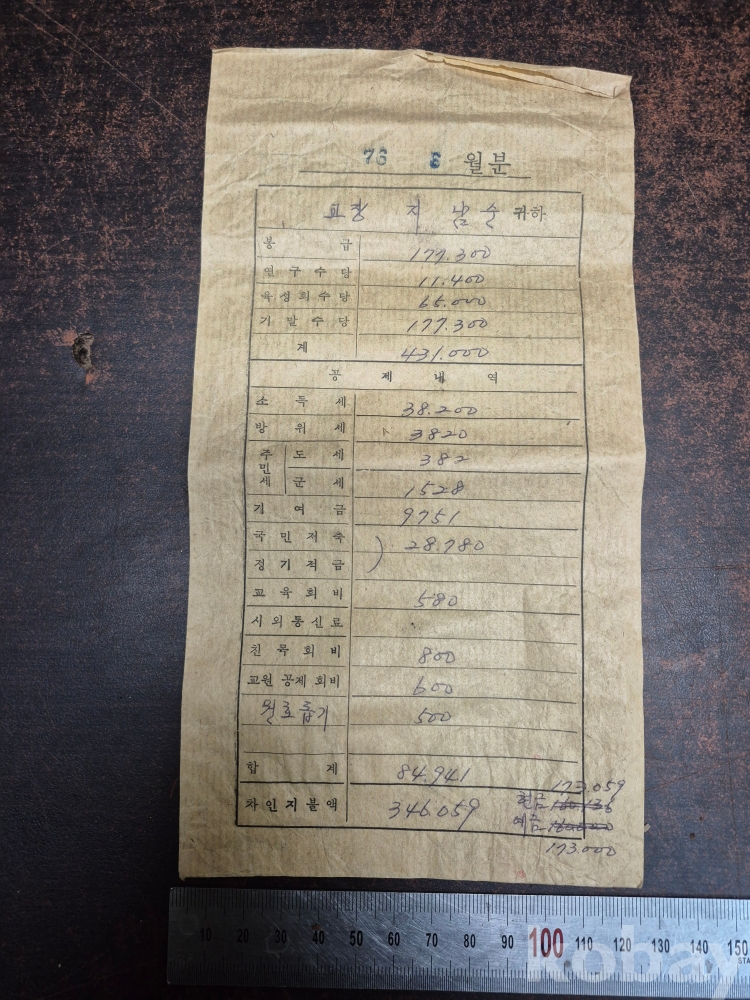 76 6 월분
교장 지 남 순 귀하
봉 급 177.300
연구수당 11.400
육성회수당 65.000
기말수당 177.300
계 431.000
공 제 내 역
소 득 세 38.200
방 위 세 3820
주민세 도 세 382
군 세 1528
기 여 금 9751
국민저축 ) 28.780
정기적금
교육회비 580
시외통신료
친목회비 800
교원공제회비 600
500
합 계 84.941
차인지불액 346.059
173.059
현금
예금
173.000
10 20 30 40 50 60 70 80 90 100 110 120 130 140 150
STA
kobay